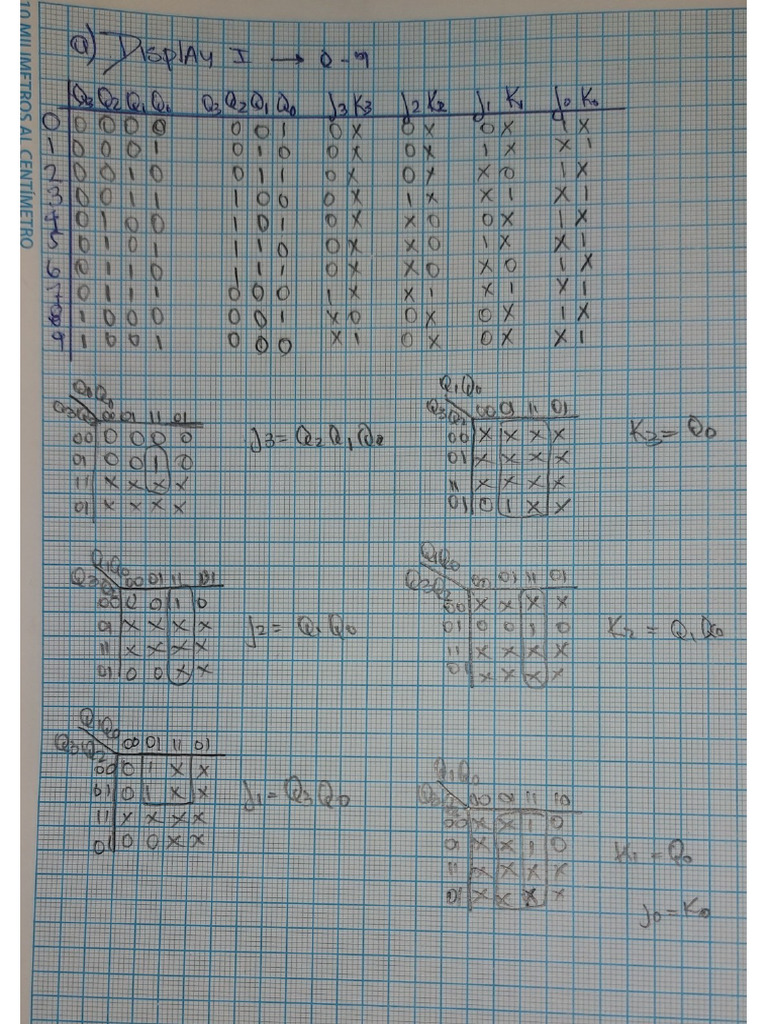 10 MILIMETROS AL CENTÍMETRO
a) Display I → 0-9
Q3 Q2 Q1 Q0 Q3 Q2 Q1 Q0 J3 K3 J2 K2 J1 K1 J0 K0
0 0 0 0 0 0 0 1 0 X 0 X 0 X 1 X
1 0 0 0 1 0 1 0 0 X 0 X 1 X X 1
2 0 0 1 0 0 1 1 0 X 0 X X 0 1 X
3 0 0 1 1 1 0 0 0 X 1 X X 1 X 1
4 0 1 0 0 1 0 1 0 X X 0 0 X 1 X
5 0 1 0 1 1 1 0 0 X X 0 1 X X 1
6 0 1 1 0 1 1 1 0 X X 0 X 0 1 X
7 0 1 1 1 0 0 0 1 X X 1 X 1 X 1
8 1 0 0 0 0 0 1 X 0 0 X 0 X 1 X
9 1 0 0 1 0 0 0 X 1 0 X 0 X X 1
Q1Q0
Q3Q2 00 01 11 01
00 0 0 0 0
01 0 0 1 0
11 X X X X
01 X X X X
J3 = Q2 Q1 Q0
Q1Q0
Q3Q2 00 01 11 01
00 X X X X
01 X X X X
11 X X X X
01 0 1 X X
K3 = Q0
Q1Q0
Q3Q2 00 01 11 01
00 0 0 1 0
01 X X X X
11 X X X X
01 0 0 X X
J2 = Q1 Q0
Q1Q0
Q3Q2 00 01 11 01
00 X X X X
01 0 0 1 0
11 X X X X
01 X X X X
K2 = Q1 Q0
Q1Q0
Q3Q2 00 01 11 01
00 0 1 X X
01 0 1 X X
11 X X X X
01 0 0 X X
J1 = Q3 Q0
Q1Q0
Q3Q2 00 01 11 10
00 X X 1 0
01 X X 1 0
11 X X X X
01 X X X X
K1 = Q0
J0 = K0